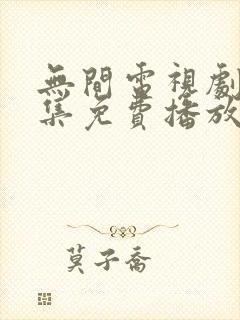 無間電視劇
集免費播放
莫子喬